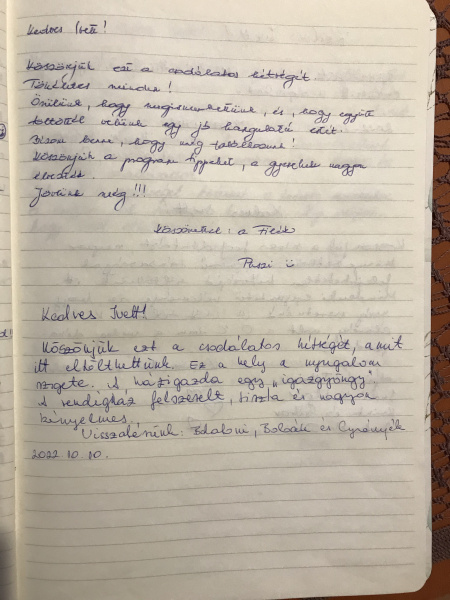 Kedves Ivett!
Köszönjük ezt a csodálatos hétvégét.
Tökéletes minden!
Örülünk, hogy megismerhettünk, és, hogy együtt
veled egy jó hangulatú estét.
Bízom benne, hogy még találkozunk!
Köszönjük a program tippeket, a gyerekek nagyon
élvezték.
Jövünk még!!!
Köszönettel: a
Puszi
Kedves Ivett!
Köszönjük ezt a csodálatos hétvégét, amit
itt eltölthettünk. Ez a hely a nyugalom
szigete. A házigazda egy „igazgyöngy”
A vendégház felszerelt, tiszta és nagyon
kényelmes.
Visszatérünk: és
2022 10 10.